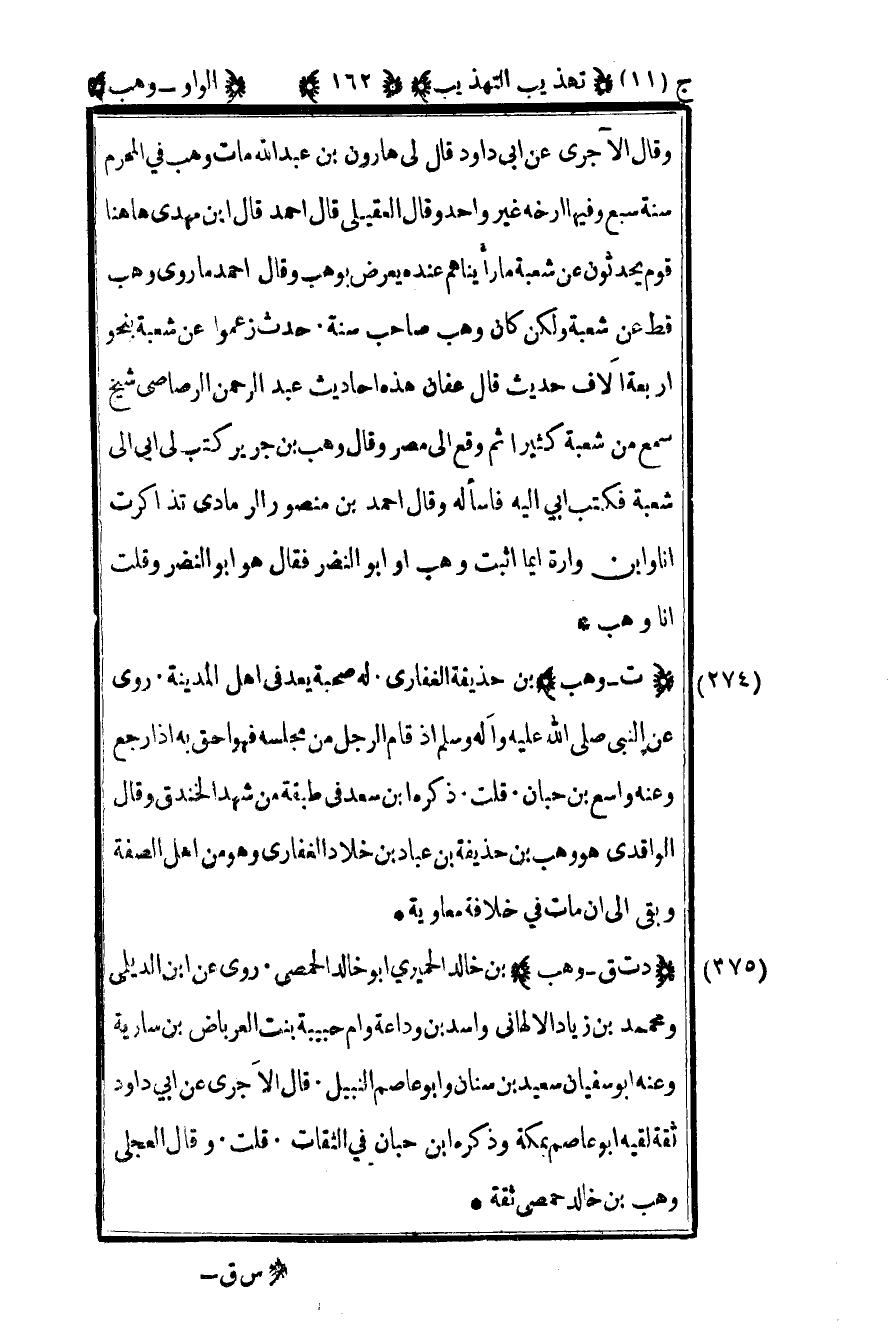 ج (١١) ﴿ تهذيب التهذيب ﴾ ﴿ ١٦٢ ﴾ ﴿ الواو ـ وهب ﴾
وقال الآجرى عن ابى داود قال لى هارون بن عبدالله مات وهب في المحرم
سنة سبع وفيها ارخه غير واحد وقال العقيلى قال احمد قال ابن مهدى هاهنا
قوم يحدثون عن شعبة ما رأيناهم عنده يعرض بوهب وقال احمد ما روى وهب
قط عن شعبة ولكن كان وهب صاحب سنة · حدث زعموا عن شعبة بنحو
اربعة آلاف حديث قال عفان هذه احاديث عبد الرحمن الرصاصى شيخ
سمع من شعبة كثيرا ثم وقع الى مصر وقال وهب بن جرير كتب لى ابى الى
شعبة فكتب ابي اليه فاسأله وقال احمد بن منصور الرمادى تذاكرت
انا وابن وارة ايما اثبت وهب او ابو النضر فقال هو ابو النضر وقلت
انا وهب *
(٢٧٤) ﴿ ت ـ وهب ﴾ بن حذيفة الغفارى · له صحبة يعد فى اهل المدينة · روى
عن النبى صلى الله عليه وآله وسلم اذ قام الرجل من مجلسه فهو احق به اذا رجع
وعنه واسع بن حبان · قلت · ذكره ابن سعد فى طبقة من شهد الخندق وقال
الواقدى هو وهب بن حذيفة بن عباد بن خلاد الغفارى وهو من اهل الصفة
وبقى الى ان مات في خلافة معاوية *
(٢٧٥) ﴿ دت ق ـ وهب ﴾ بن خالد الحميري ابو خالد الحمصي · روى عن ابن الديلمى
ومحمد بن زياد الالهانى واسد بن وداعة وام حبيبة بنت العرباض بن سارية
وعنه ابو سفيان سعيد بن سنان وابو عاصم النبيل · قال الآجرى عن ابي داود
ثقة لقيه ابو عاصم بمكة وذكره ابن حبان في الثقات · قلت · وقال العجلى
وهب بن خالد حمصى ثقة *
﴿ س ق ـ